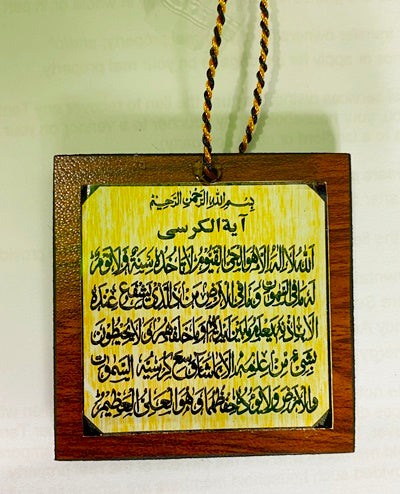 بسم الله الرحمن الرحيم
آية الكرسي
الله لا إله إلا هو الحي القيوم لا تأخذه سنة ولا نوم
له ما في السموات وما في الأرض من ذا الذي يشفع عنده
إلا بإذنه يعلم ما بين أيديهم وما خلفهم ولا يحيطون
بشيء من علمه إلا بما شاء وسع كرسيه السموات
والأرض ولا يؤده حفظهما وهو العلي العظيم